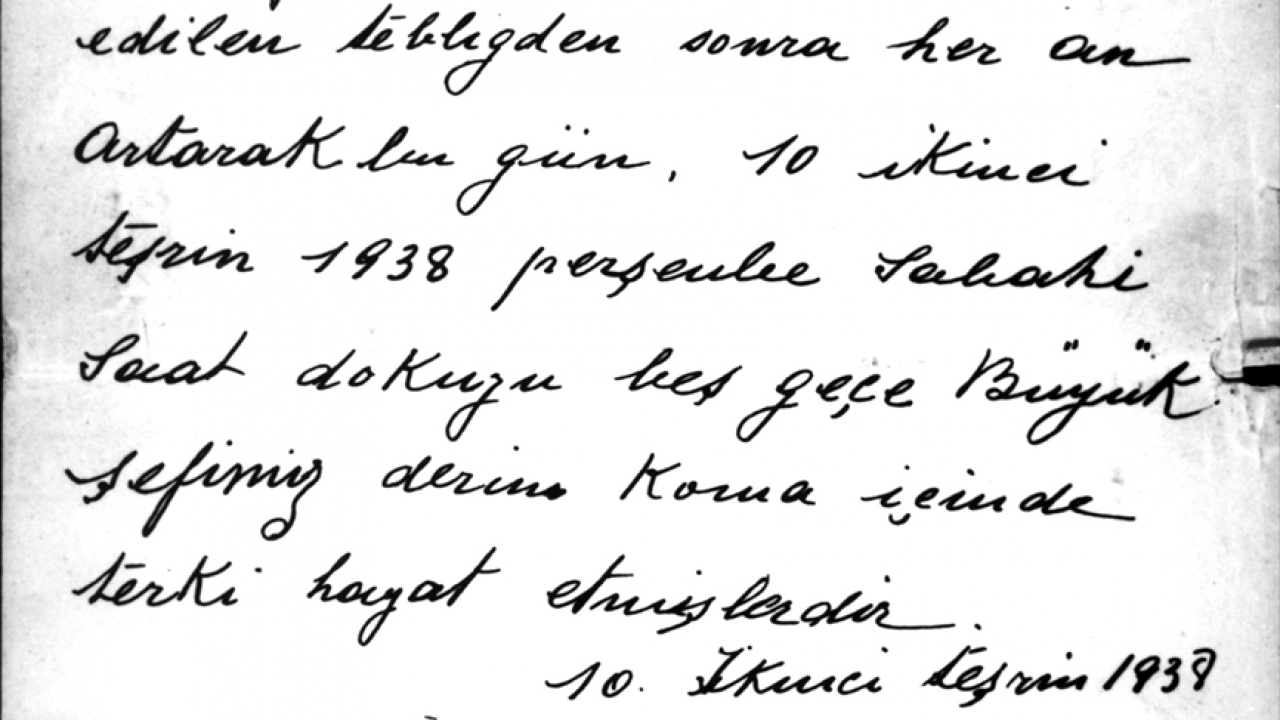 edilen tebligden sonra her an
Artarak bu gün, 10 ikinci
teşrin 1938 perşenbe Sabahi
Saat dokuzu beş geçe Büyük
şefimiz derin Koma içinde
terki hayat etmişlerdir.
10. İkinci teşrin 1938